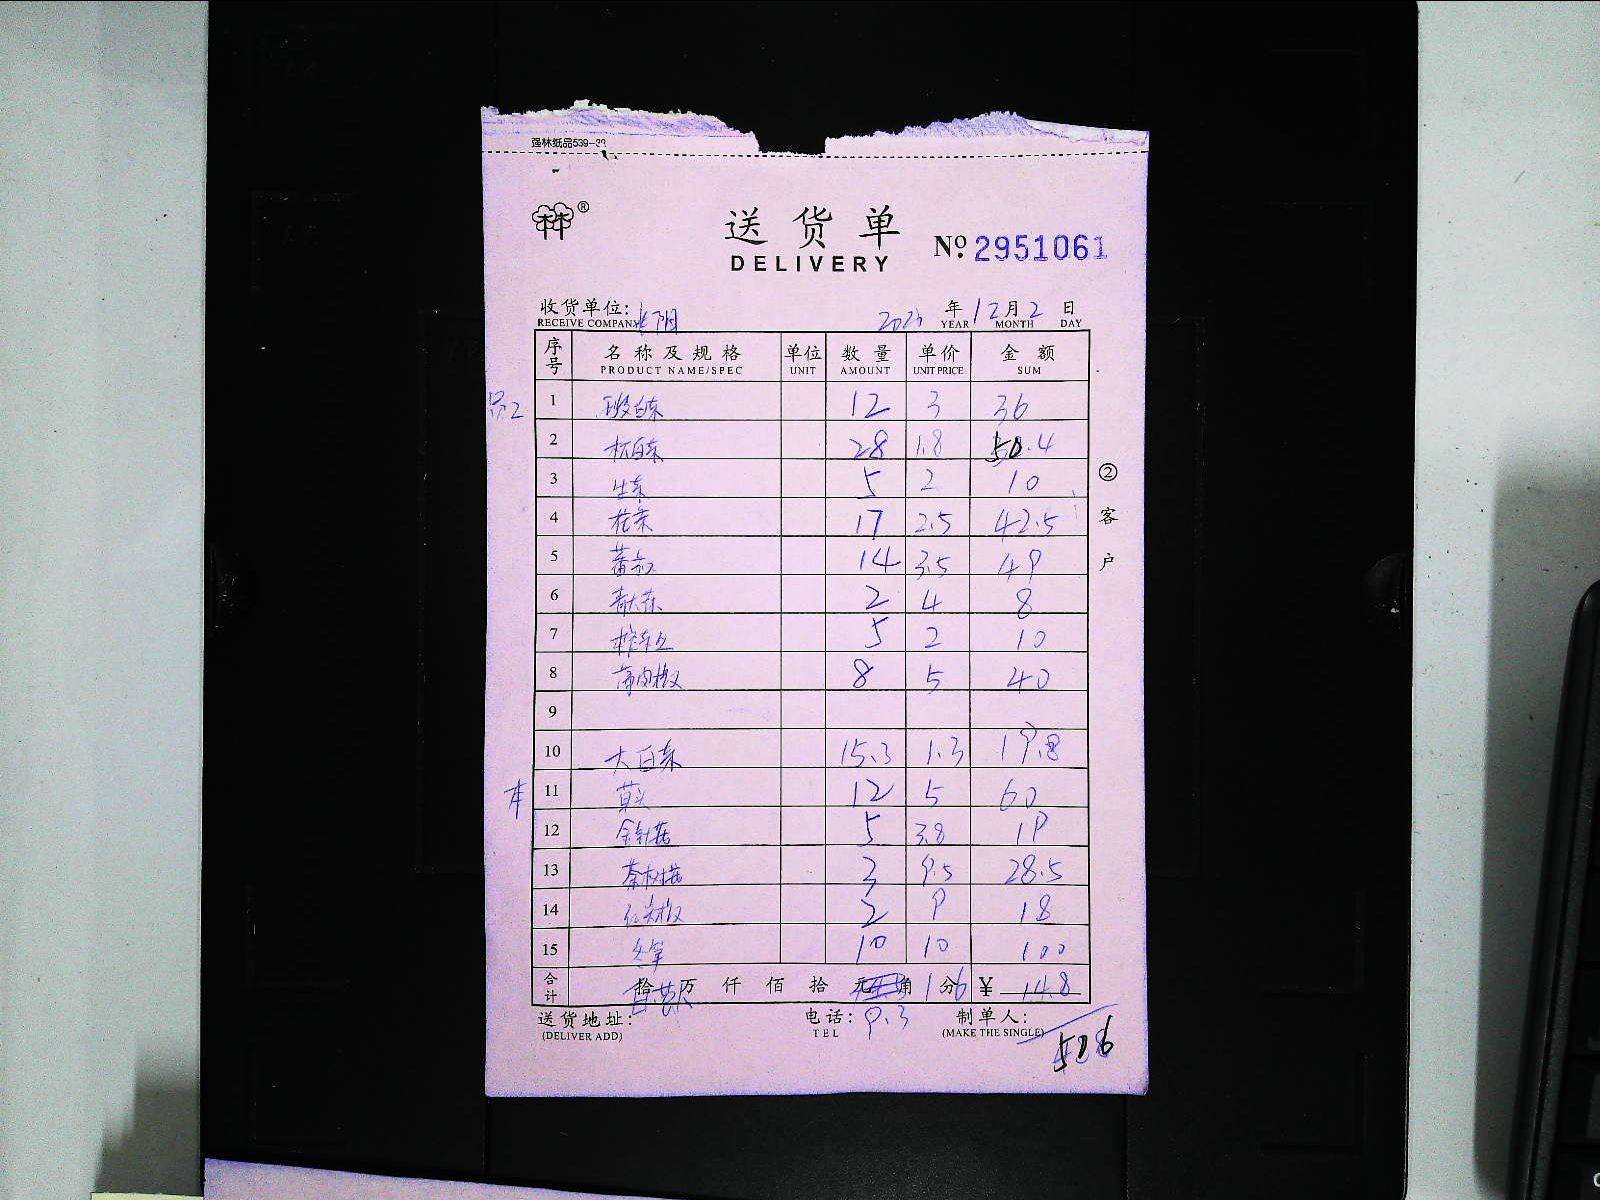 强林纸品539-3?
送货单
DELIVERY
№: 2951061
收货单位:
RECEIVE COMPANY
年 12 月 2 日
YEAR MONTH DAY
序号 名称及规格 单位 数量 单价 金额
PRODUCT NAME/SPEC UNIT AMOUNT UNIT PRICE SUM
1 12 3 36
2 杯白菜 28 1.8 50.4
3 生菜 5 2 10
4 花菜 17 2.5 42.5
5 蕃茄 14 3.5 49
6 青大蒜 2 4 8
7 5 2 10
8 薄肉椒 8 5 40
9
10 大白菜 15.3 1.3 19.8
11 草头 12 5 60
12 金针菇 5 3.8 19
13 茶树菇 3 9.5 28.5
14 2 9 18
15 冬笋 10 10 100
合计 拾 万 仟 佰 拾 元 角 分 ¥ 14.8
1.6
送货地址: 电话: 9.3 制单人:
(DELIVER ADD) TEL (MAKE THE SINGLE)
506
② 客户